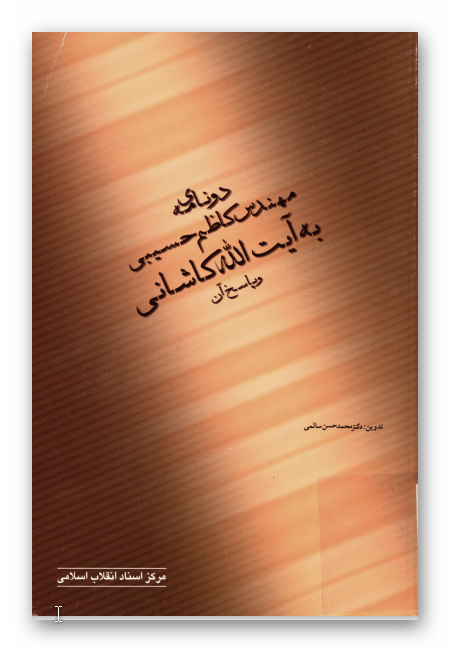 دو نامه‌ی
مهندس کاظم حسیبی
به آیت الله کاشانی
و پاسخ آن
تدوین: دکتر محمد حسن سالمی
مرکز اسناد انقلاب اسلامی